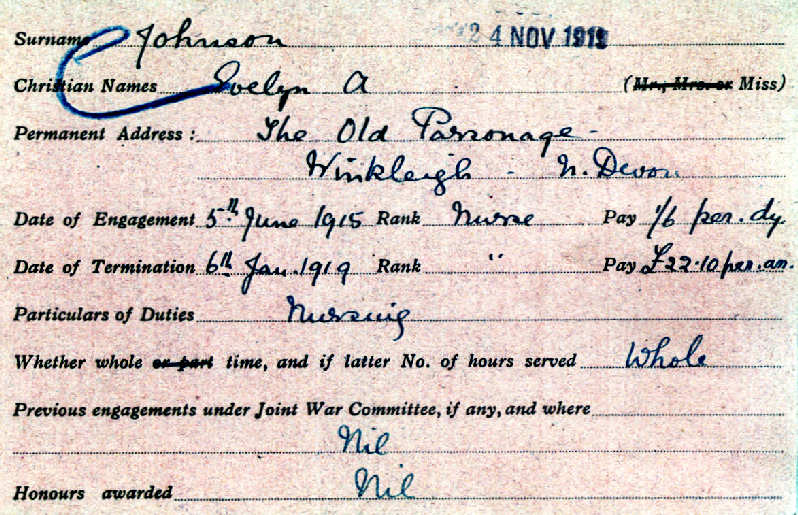 Surname Johnson 24 NOV 1919
Christian Names Evelyn A (Mr., Mrs. or Miss)
Permanent Address: The Old Parsonage -
Winkleigh - N. Devon.
Date of Engagement 5th June 1915 Rank Nurse Pay 1/6 per. dy.
Date of Termination 6th Jan. 1919 Rank " Pay £22·10 per. an.
Particulars of Duties Nursing
Whether whole or part time, and if latter No. of hours served Whole
Previous engagements under Joint War Committee, if any, and where
Nil
Honours awarded Nil